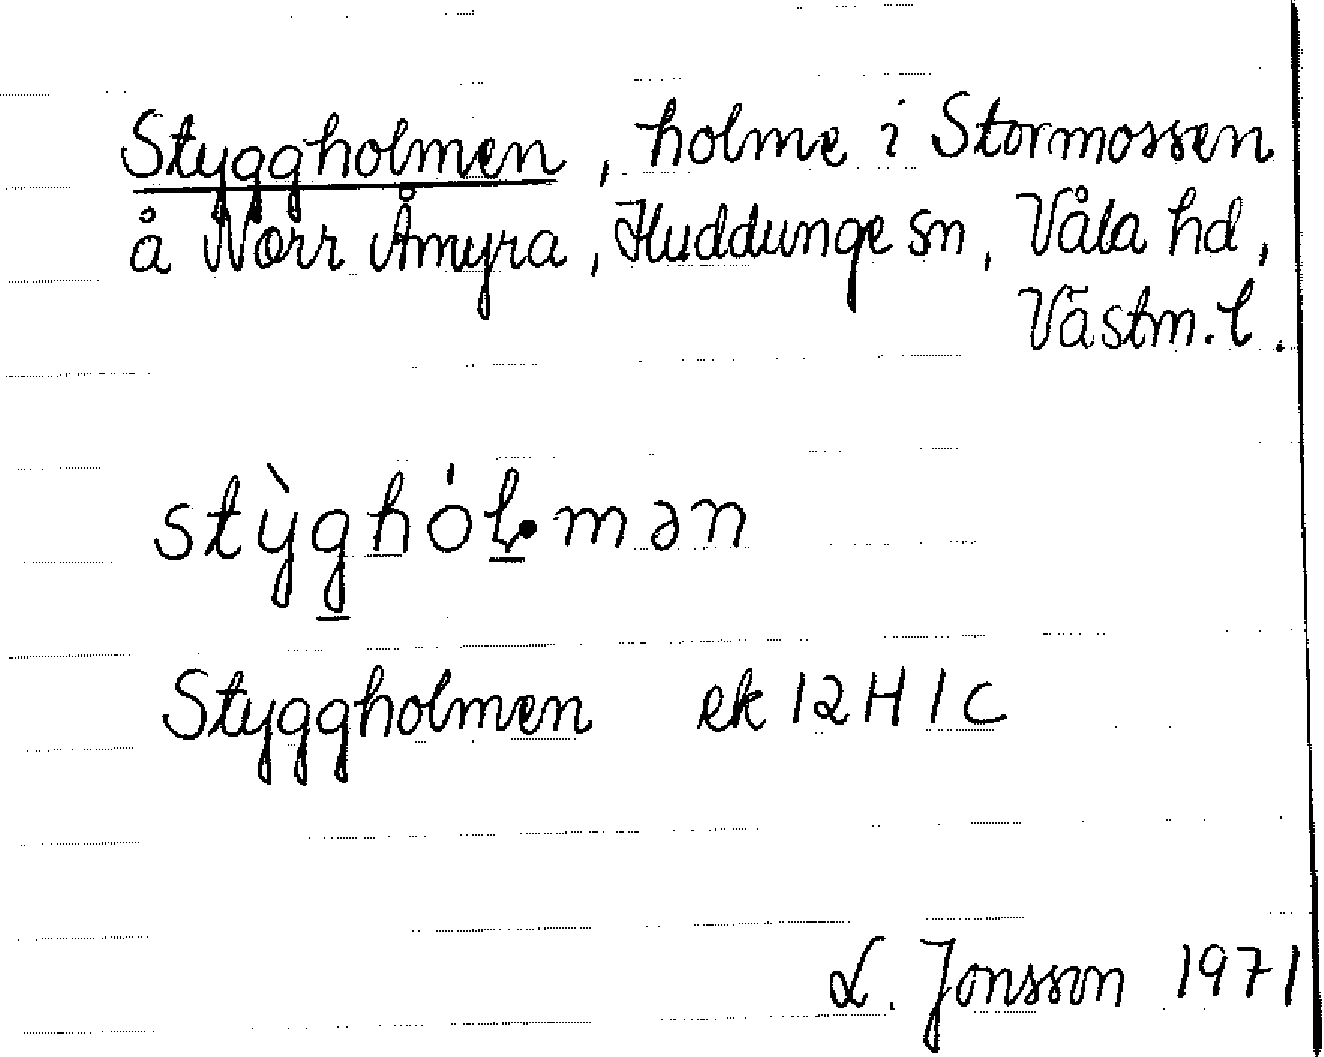 Styggholmen, holme i Stormossen
å Norr Åmyra, Huddunge sn, Våla hd,
Västm. l.
stỳghól·mən
Styggholmen ek 12H 1c
L. Jonsson 1971